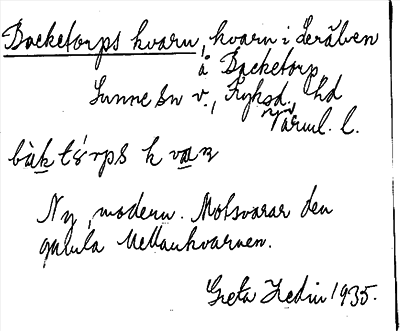 Backetorps kvarn, kvarn i Lerälven
å Backetorp
Sunne sn v., Fryksd. hd
Värml. l.
bàktórps kvan
Ny, modern. Motsvarar den
gamla Mellankvarnen.
Greta Hedin 1935.